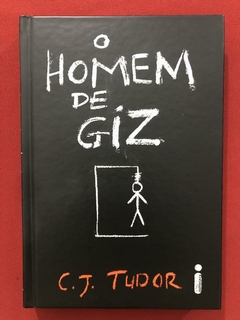 O
HOMEM
DE
GIZ
C.J. TUDOR
i